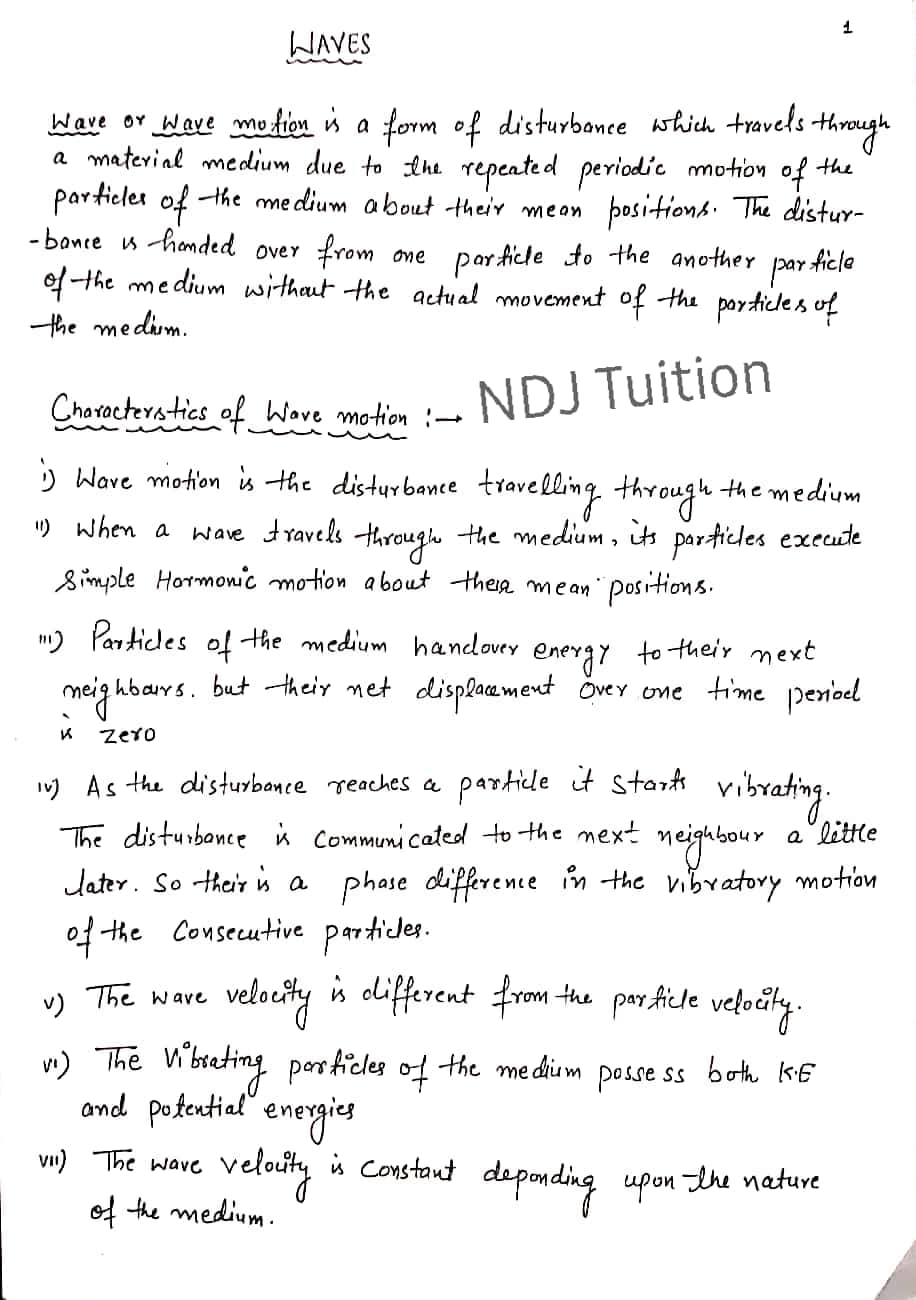 1
WAVES
Wave or Wave motion is a form of disturbance which travels through
a material medium due to the repeated periodic motion of the
particles of the medium about their mean positions. The distur-
-bance is handed over from one particle to the another particle
of the medium without the actual movement of the particles of
the medium.
NDJ Tuition
Characterstics of Wave motion :→
i) Wave motion is the disturbance travelling through the medium
ii) When a wave travels through the medium, its particles execute
Simple Harmonic motion about their mean positions.
iii) Particles of the medium handover energy to their next
neighbours. but their net displacement over one time period
is zero
iv) As the disturbance reaches a particle it starts vibrating.
The disturbance is communicated to the next neighbour a little
later. So their is a phase difference in the vibratory motion
of the Consecutive particles.
v) The wave velocity is different from the particle velocity.
vi) The Vibrating particles of the medium possess both K.E
and potential energies
vii) The wave velocity is constant depending upon the nature
of the medium.